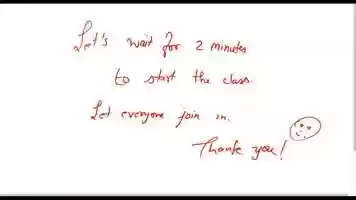 Let's wait for 2 minutes
to start the class.
Let everyone join in.
Thank you!